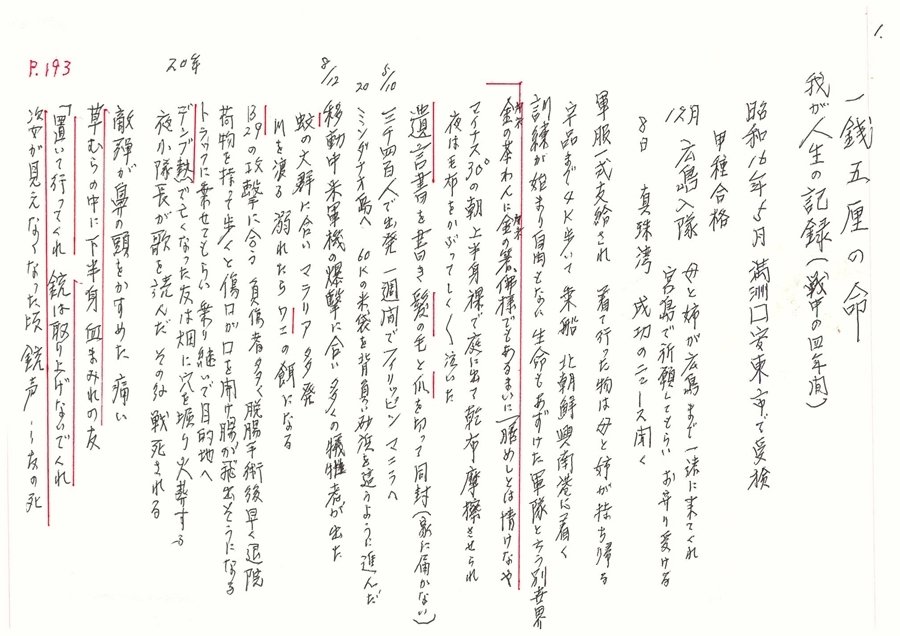 1.
一銭五厘の命
我が人生の記録(戦中の四年間)
昭和16年5月 満洲国安東市で受検
甲種合格
12月 広島入隊 母と姉が広島まで一緒に来てくれ
宮島で祈願してもらい お守り受ける
8日 真珠湾 成功のニュース聞く
軍服一式支給され 着て行った物は母と姉が持ち帰る
宇品まで4K歩いて乗船 北朝鮮興南港に着く
訓練が始まり自由もない 生命もあずけた軍隊と云う別世界
金の茶わんに金の箸 佛様でもあるまいに「膳めしとは情けなや
カネ カネ
マイナス30°の朝上半身裸で庭に出て乾布摩擦させられ
夜は毛布をかぶってしくしく泣いた
遺言書を書き髪の毛と爪を切って同封(家に届かない)
5/10 三千四百人で出発 一週間でフィリッピン マニラへ
20 ミンダナオ島へ 60Kの米袋を背負い砂浜を這うように進んだ
8/12 移動中米軍機の爆撃に合い 多くの犠牲者が出た
蚊の大群に合い マラリア多発
川を渡る 溺れたらワニの餌になる
B29の攻撃に合う 負傷者多く脱腸手術後早く退院
荷物を持って歩くと傷口が口を開け腸が飛出そうになる
トラックに乗せてもらい乗り継いで目的地へ
20年 デング熱で亡くなった友は畑に穴を堀り火葬する
夜小隊長が歌を読んだ その夕 戦死される
敵弾が鼻の頭をかすめた 痛い
草むらの中に下半身血まみれの友
P.193 「置いて行ってくれ 銃は取り上げないでくれ
姿が見えなくなった頃 銃声…友の死